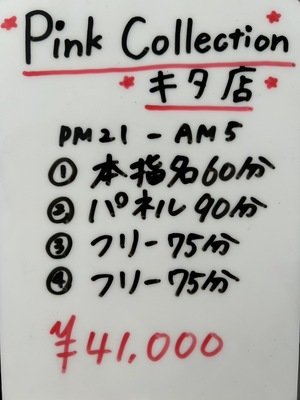 Pink Collection
キタ店
PM21 - AM5
① 本指名60分
② パネル90分
③ フリー75分
④ フリー75分
¥41,000